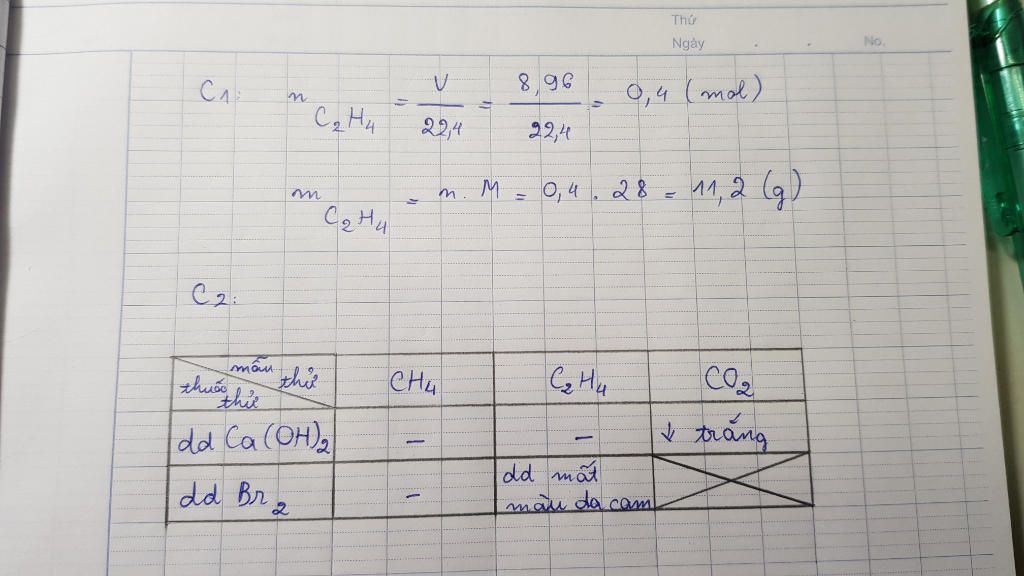 Thứ
Ngày . . No.
C1: n C2H4 = V/22,4 = 8,96/22,4 = 0,4 (mol)
m C2H4 = n. M = 0,4 . 28 = 11,2 (g)
C2:
mẫu thử
thuốc thử
CH4
C2H4
CO2
dd Ca(OH)2
–
–
↓ trắng
dd Br2
–
dd mất
màu da cam